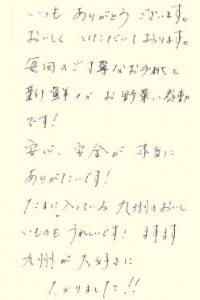 いつも ありがとう ございます。
おいしく いただいております。
毎回のご丁寧なお手紙と
新鮮なお野菜に感動
です!
安心、安全が 本当に
ありがたいです!
たまに入っている 九州のおいし
いものも うれしいです! ますます
九州が 大好きに
なりました!!